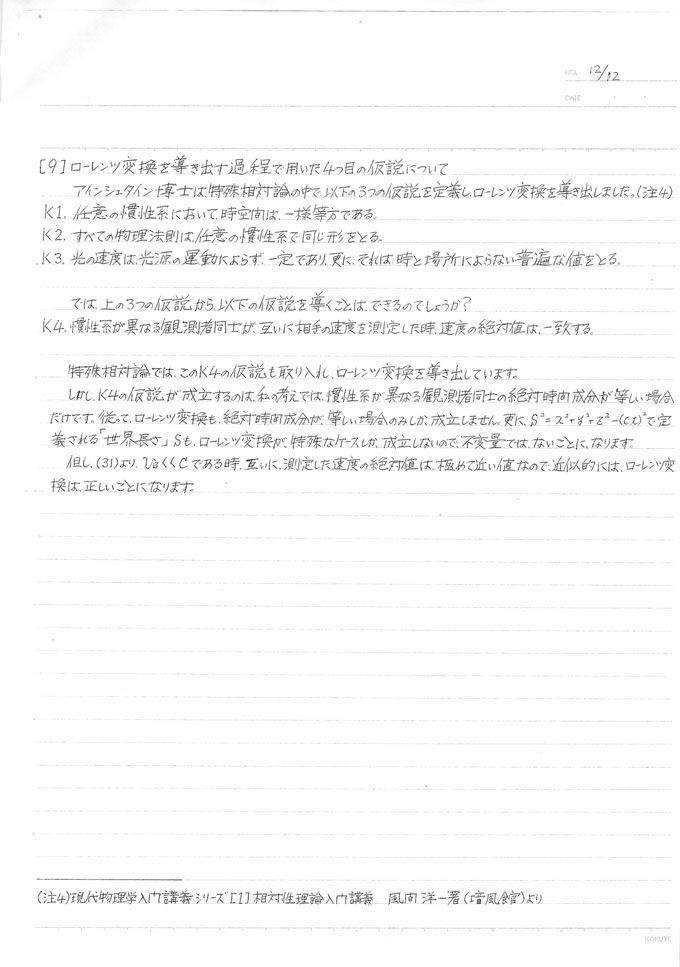 NO. 12/12
DATE ・ ・
[9] ローレンツ変換を導き出す過程で用いた4つ目の仮説について
アインシュタイン博士は、特殊相対論の中で、以下の3つの仮説を定義し、ローレンツ変換を導き出しました。(注4)
K1. 任意の慣性系において、時空間は、一様等方である。
K2. すべての物理法則は、任意の慣性系で同じ形をとる。
K3. 光の速度は、光源の運動によらず、一定であり、更に、それは、時と場所によらない普遍な値をとる。
では、上の3つの仮説から、以下の仮説を導くことは、できるのでしょうか?
K4. 慣性系が異なる観測者同士が、互いに相手の速度を測定した時、速度の絶対値は、一致する。
特殊相対論では、このK4の仮説も取り入れ、ローレンツ変換を導き出しています。
しかし、K4の仮説が成立するのは、私の考えでは、慣性系が異なる観測者同士の絶対時間成分が等しい場合
だけです。従って、ローレンツ変換も、絶対時間成分が、等しい場合のみしか、成立しません。更に、S²=x²+y²+z²-(ct)²で定
義される「世界長さ」Sも、ローレンツ変換が、特殊なケースしか、成立しないので、不変量では、ないことに、なります。
但し、(31)より、v₀<<Cである時、互いに、測定した速度の絶対値は、極めて近い値なので、近似的には、ローレンツ変
換は、正しいことになります。
(注4)現代物理学入門講義シリーズ[1]相対性理論入門講義 風間洋一著(培風館)より
KOKUYO